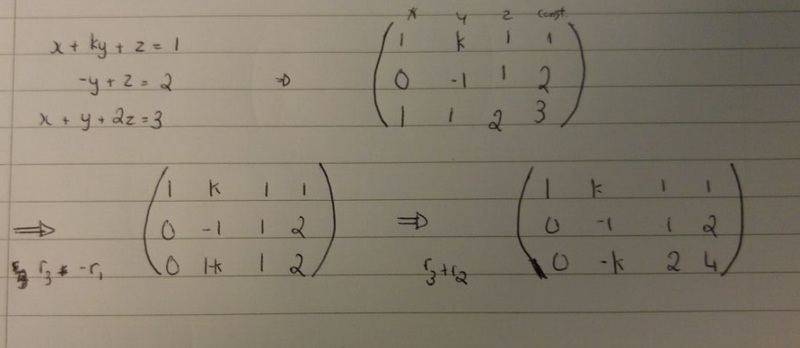 x + ky + z = 1
-y + z = 2
x + y + 2z = 3
⇒
x y z const.
1 k 1 1
0 -1 1 2
1 1 2 3
⇒
r₃ - r₁
1 k 1 1
0 -1 1 2
0 1-k 1 2
⇒
r₃+r₂
1 k 1 1
0 -1 1 2
0 -k 2 4